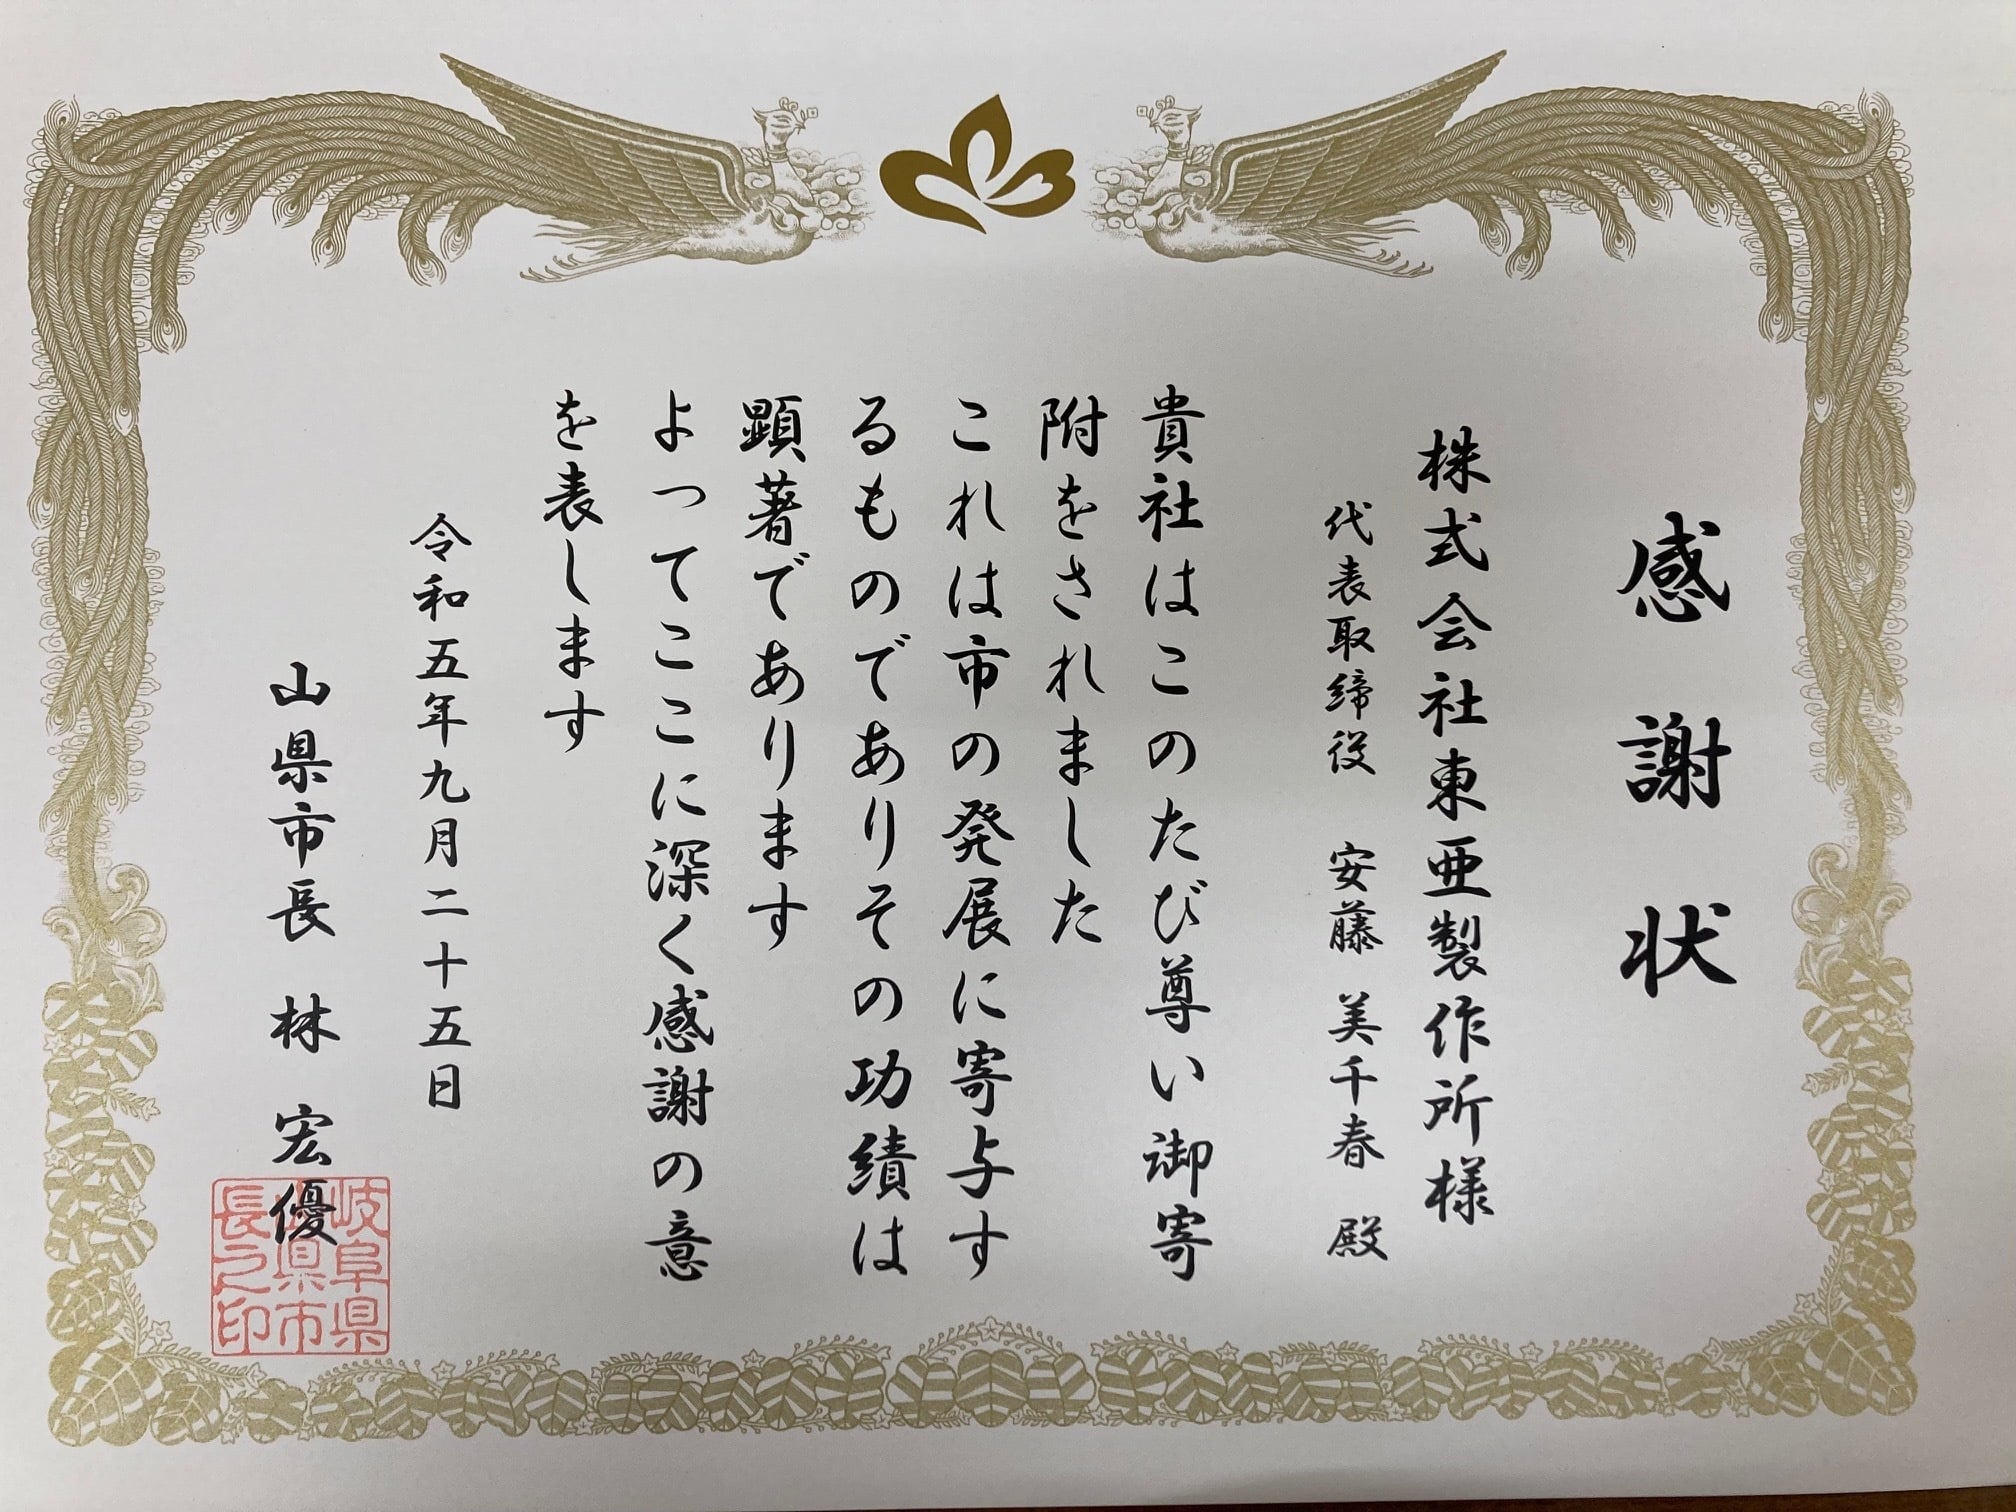 感謝状
株式会社東亜製作所様
代表取締役 安藤 美千春 殿
貴社はこのたび尊い御寄
附をされました
これは市の発展に寄与す
るものでありその功績は
顕著であります
よってここに深く感謝の意
を表します
令和五年九月二十五日
山県市長 林 宏優
岐阜県
山県市
長之印